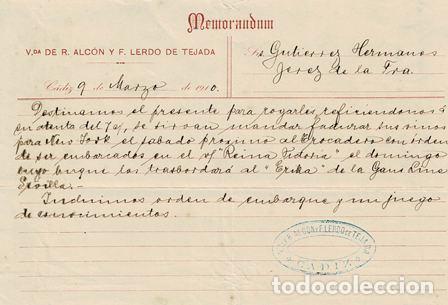 Memorandum
V.DA DE R. ALCÓN Y F. LERDO DE TEJADA
Srs Gutierrez Hermanos
Jerez de la Fra.
Cádiz 9 de Marzo de 1910.
Destinamos el presente para rogarles refiriendonos á
su atenta del 7, se sirvan mandar facturar sus vinos
para New York el sabado proximo al Trocadero con orden
de ser embarcados en el v/ "Reina Victoria" el domingo
cuyo buque los trasbordará al "Erika" de la Gans Line
Sevilla.
Incluimos orden de embarque y un juego
de conocimientos.
VIUDA DE R. ALCON Y F. LERDO DE TEJADA
CADIZ
todocoleccion.net